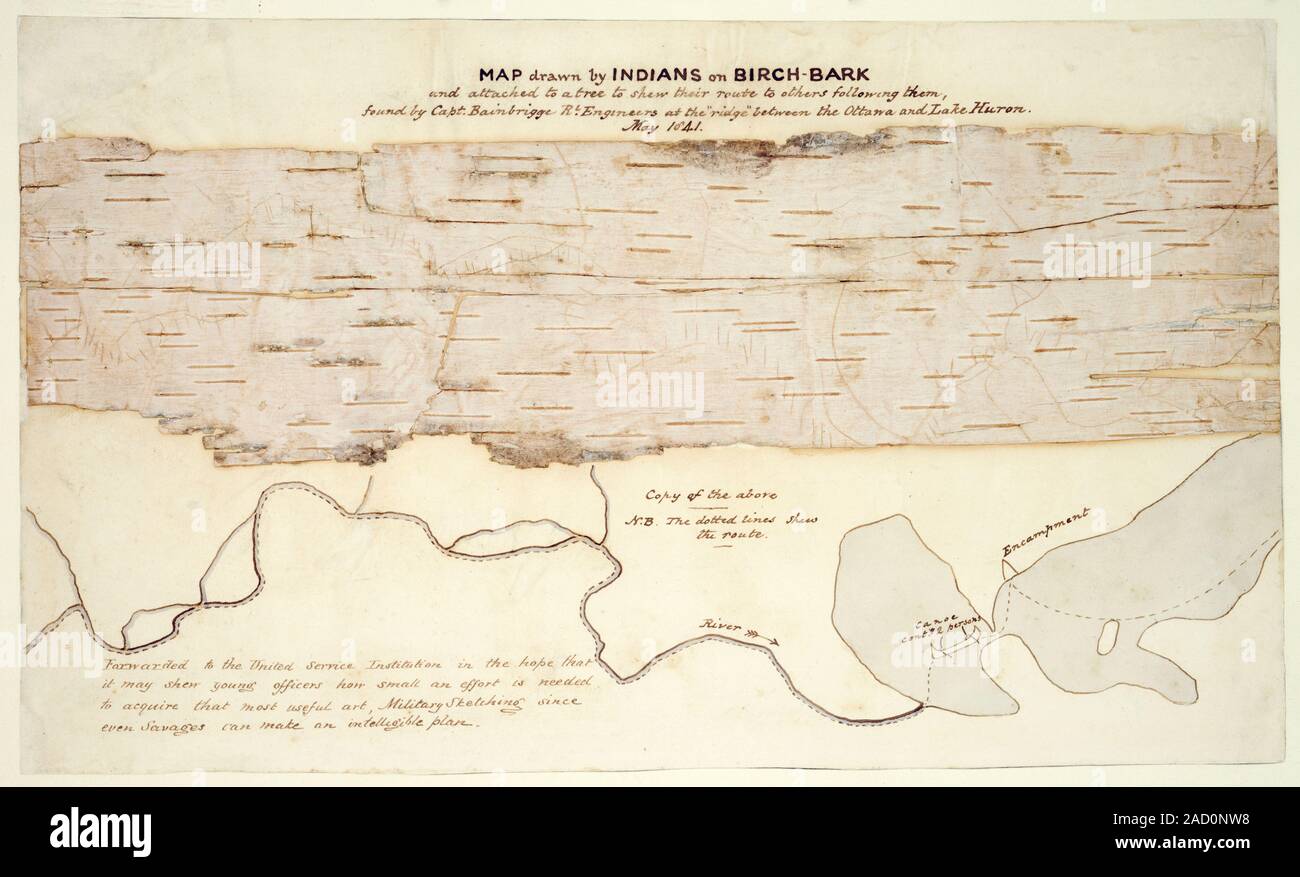 MAP drawn by INDIANS on BIRCH-BARK
and attached to a tree to shew their route to others following them,
found by Capt. Bainbrigge Rl. Engineers at the "ridge" between the Ottawa and Lake Huron.
May 1841.
Copy of the above
N.B. The dotted lines shew
the route.
Encampment
Canoe
contg 2 persons
River
Forwarded to the United Service Institution in the hope that
it may shew young officers how small an effort is needed
to acquire that most useful art, Military Sketching, since
even Savages can make an intelligible plan.
alamy
alamy
alamy
a
a
a
alamy
Image ID: 2AD0NW8
www.alamy.com